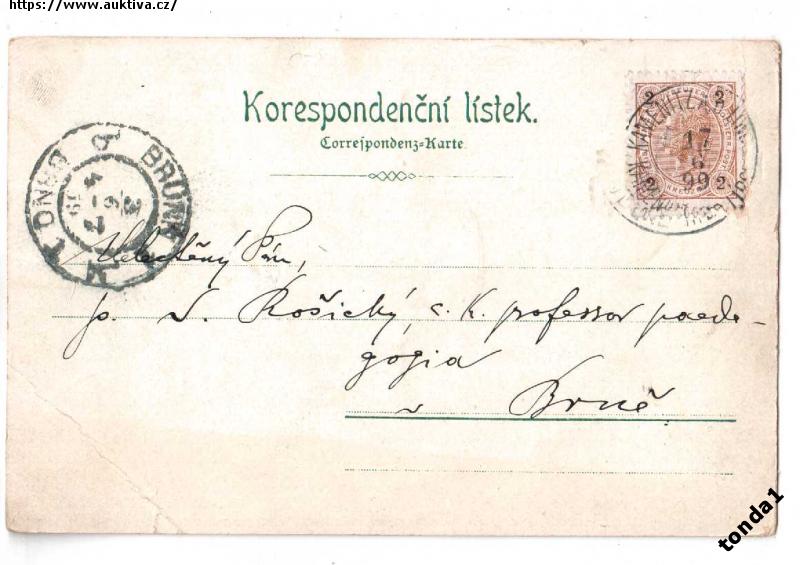 https://www.auktiva.cz/
Korespondenční lístek.
Correspondenz-Karte
2 2
KAMENITZ A.
17
6
99
2 2
BRÜNN
BRNO
Velectěný Pán,
p. J. Košický, c. k. professor paeda-
gogia
v Brně
tonda1